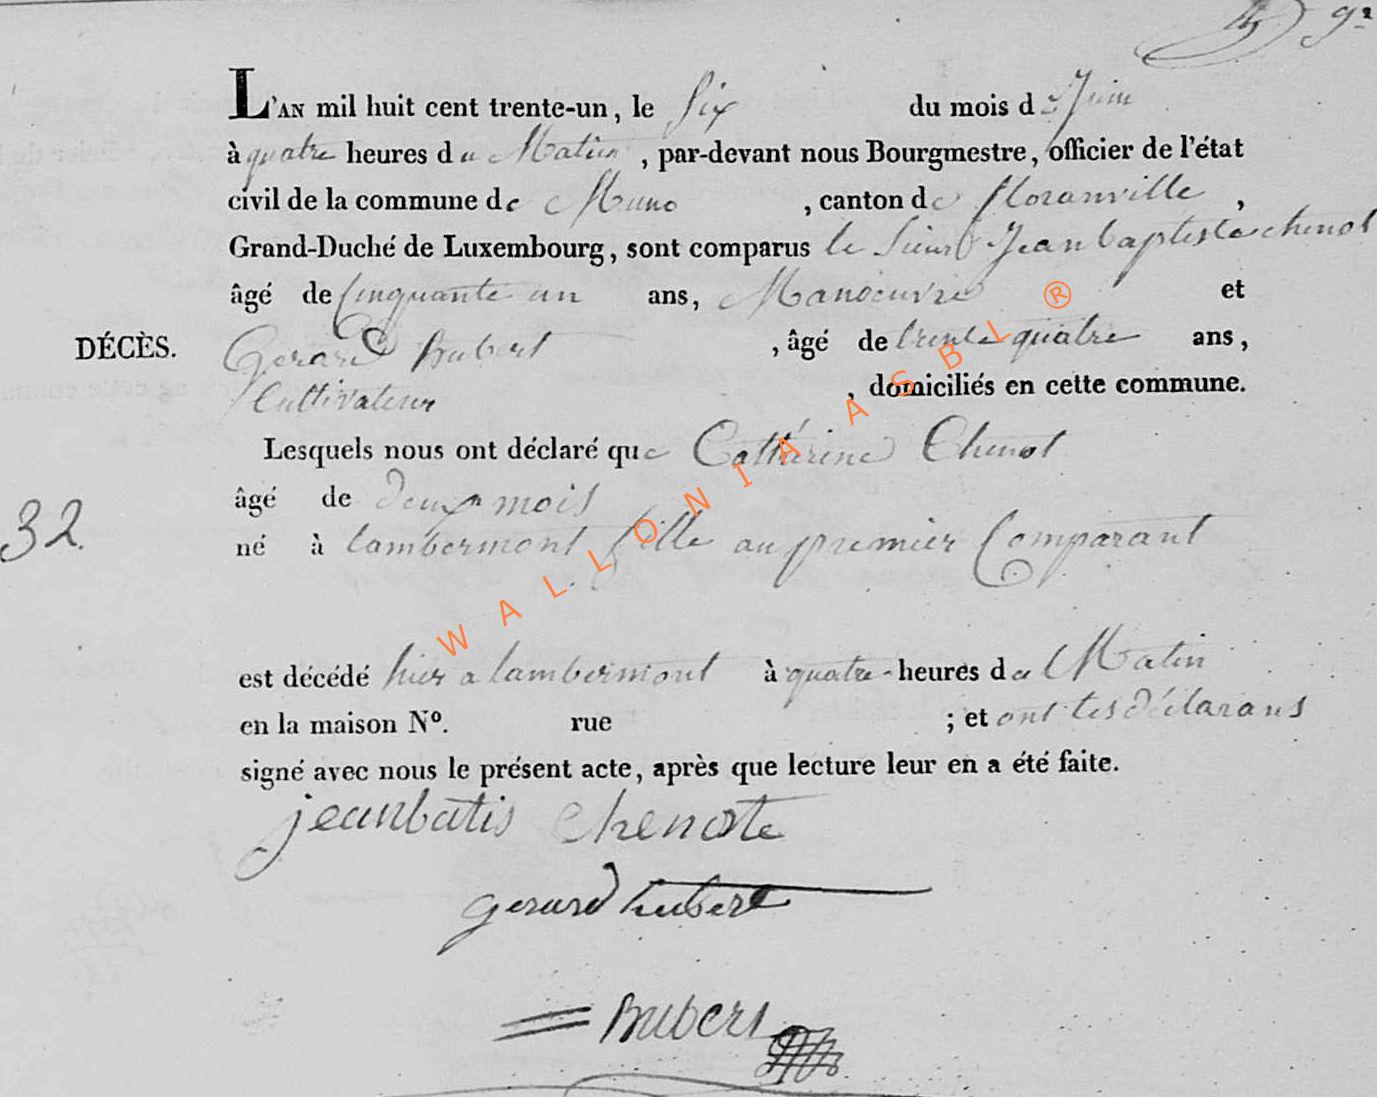 L'AN mil huit cent trente-un, le Six du mois de Juin
à quatre heures du Matin, par-devant nous Bourgmestre, officier de l'état
civil de la commune de Muno, canton de floranville,
Grand-Duché de Luxembourg, sont comparus le Sieur Jean baptiste chenot
âgé de Cinquante un ans, Manoeuvre et
DÉCÈS.
Gerard hubert, âgé de trente quatre ans,
Cultivateur, domiciliés en cette commune.
Lesquels nous ont déclaré que Cathérine Chenot
âgé de deux mois
32.
né à lambermont fille au premier Comparant
est décédé hier a lambermont à quatre heures du Matin
en la maison Nº. rue ; et ont les déclarans
signé avec nous le présent acte, après que lecture leur en a été faite.
jeanbatis chenote
gerard hubert
hubert
WALLONIA ASBL ®